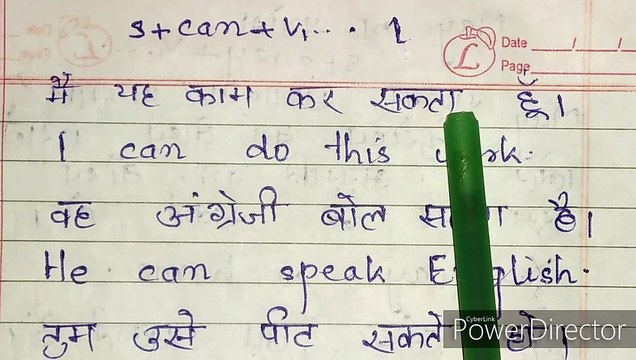 s + can + V₁ ... . 1
Date
Page
मैं यह काम कर सकता हूँ।
I can do this
वह अंग्रेजी बोल है।
He can speak English.
तुम उसे पीट सकते हो।
CyberLink
PowerDirector